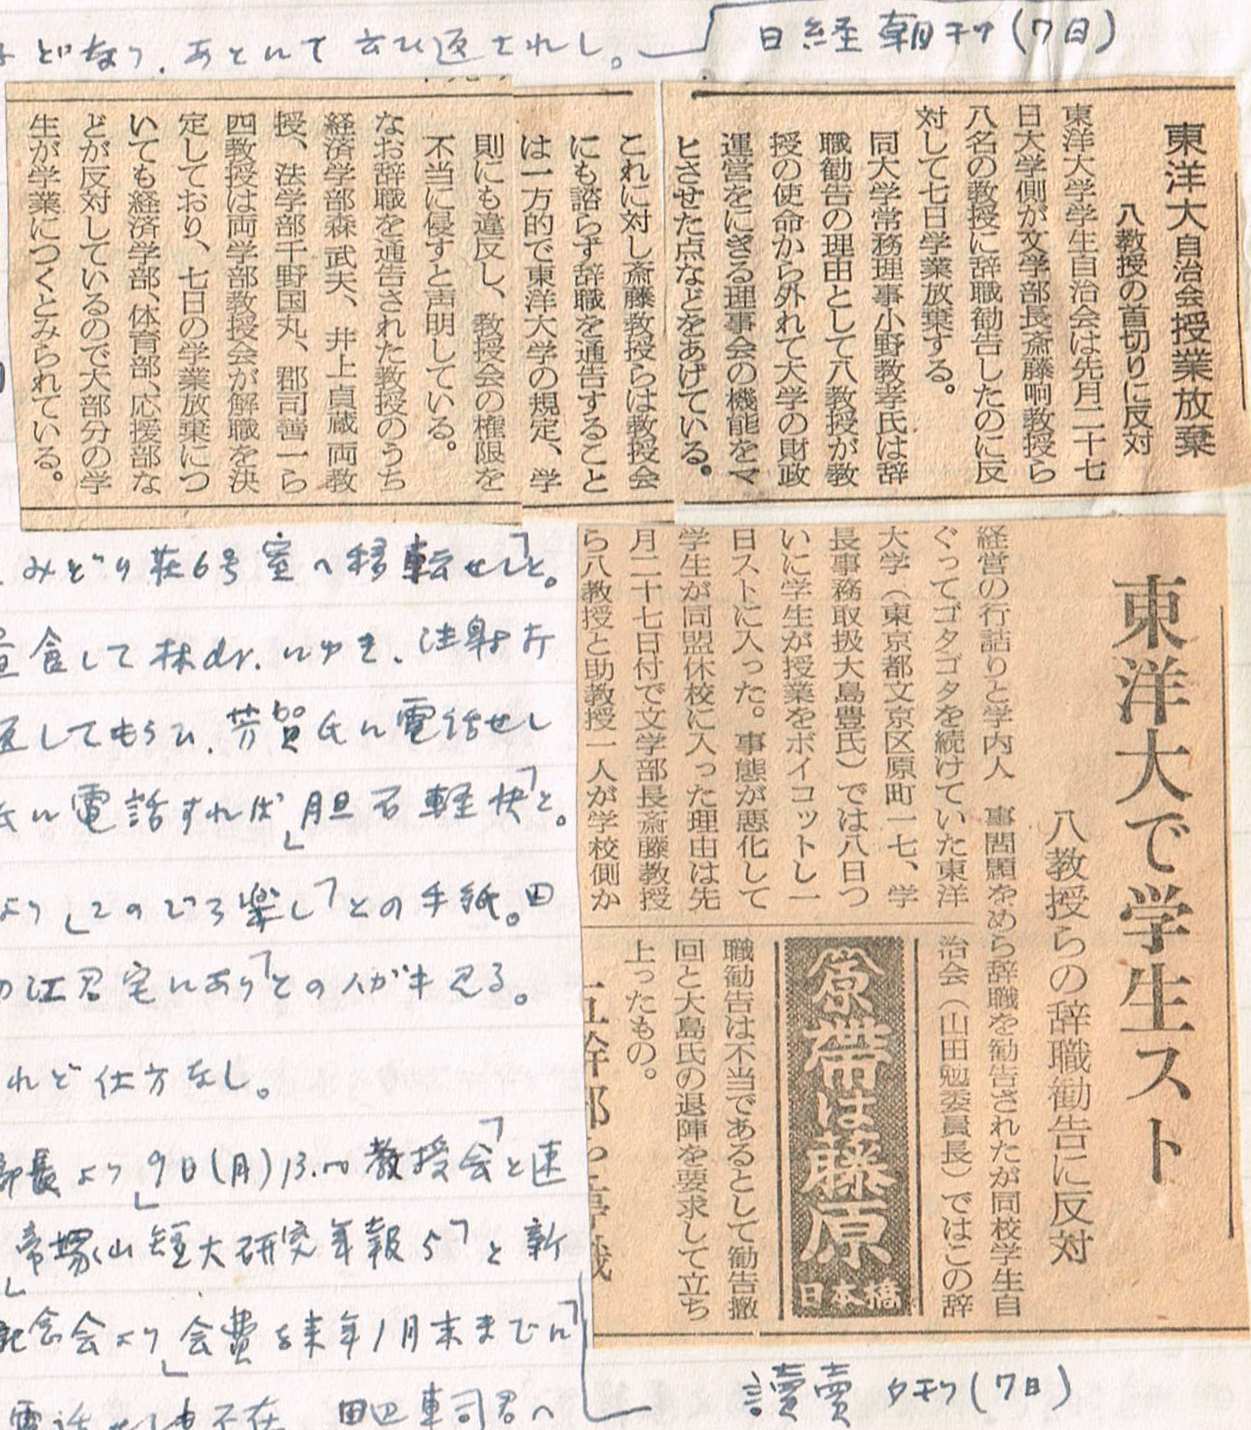 どなり、あとにて云ひ返されし。
日経朝刊(7日)
東洋大自治会授業放棄
八教授の首切りに反対
東洋大学学生自治会は先月二十七
日大学側が文学部長斎藤晌教授ら
八名の教授に辞職勧告したのに反
対して七日学業放棄する。
同大学常務理事小野教孝氏は辞
職勧告の理由として八教授が教
授の使命から外れて大学の財政
運営をにぎる理事会の機能をマ
ヒさせた点などをあげている。
これに対し斎藤教授らは教授会
にも諮らず辞職を通告すること
は一方的で東洋大学の規定、学
則にも違反し、教授会の権限を
不当に侵すと声明している。
なお辞職を通告された教授のうち
経済学部森武夫、井上貞蔵両教
授、法学部千野国丸、郡司善一ら
四教授は両学部教授会が解職を決
定しており、七日の学業放棄につ
いても経済学部、体育部、応援部な
どが反対しているので大部分の学
生が学業につくとみられている。
東洋大で学生スト
八教授らの辞職勧告に反対
経営の行詰りと学内人事問題をめ
ぐってゴタゴタを続けていた東洋
大学(東京都文京区原町一七、学
長事務取扱大島豊氏)では八日つ
いに学生が授業をボイコットし一
日ストに入った。事態が悪化して
学生が同盟休校に入った理由は先
月二十七日付で文学部長斎藤教授
ら八教授と助教授一人が学校側か
ら辞職を勧告されたが同校学生自
治会(山田勉委員長)ではこの辞
職勧告は不当であるとして勧告撤
回と大島氏の退陣を要求して立ち
上ったもの。
原
帯は藤原
日本橋
みどり荘6号室へ移転せし」と。
食して林dr.にゆき、注射
してもらひ、芳賀氏に電話せし
に電話すれば「胆石軽快」と。
より「このごろ楽し」との手紙。田
の江君宅にあり」とのハガキ見る。
れど仕方なし。
部長より「9日(月)13.00教授会」と速
「帝塚山短大研究年報5」と新
記念会より「会費を来年1月末までに」
電話せしも不在
讀賣夕刊(7日)